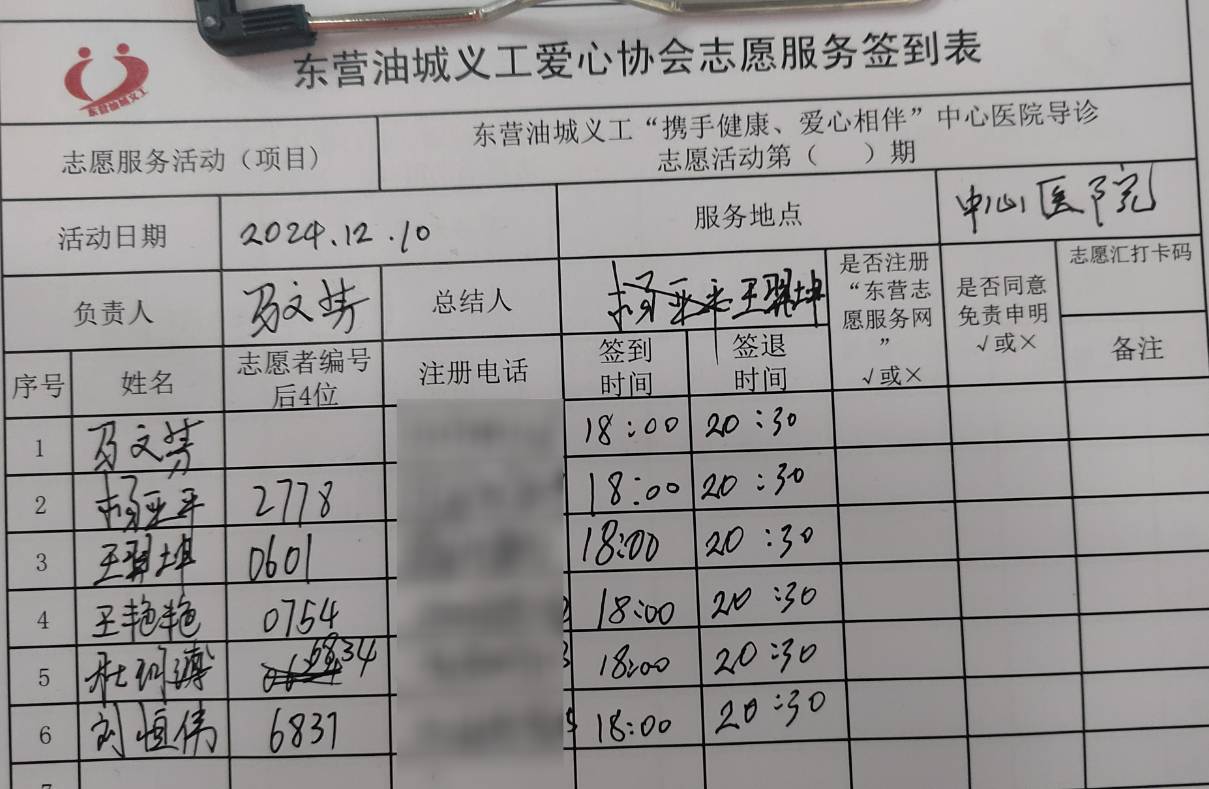 东营油城义工
东营油城义工爱心协会志愿服务签到表
志愿服务活动（项目）
东营油城义工“携手健康、爱心相伴”中心医院导诊
志愿活动第（　）期
活动日期
2024.12.10
服务地点
中心医院
负责人
马文涛
总结人
王翠坤
是否注册
“东营志
愿服务网
”
√或×
是否同意
免责申明
√或×
志愿汇打卡码
备注
序号
姓名
志愿者编号
后4位
注册电话
签到
时间
签退
时间
1
18:00
20:30
2
杨亚平
2778
18:00
20:30
3
0601
18:00
20:30
4
王艳艳
0754
18:00
20:30
5
6834
18:00
20:30
6
刘恒伟
6837
18:00
20:30